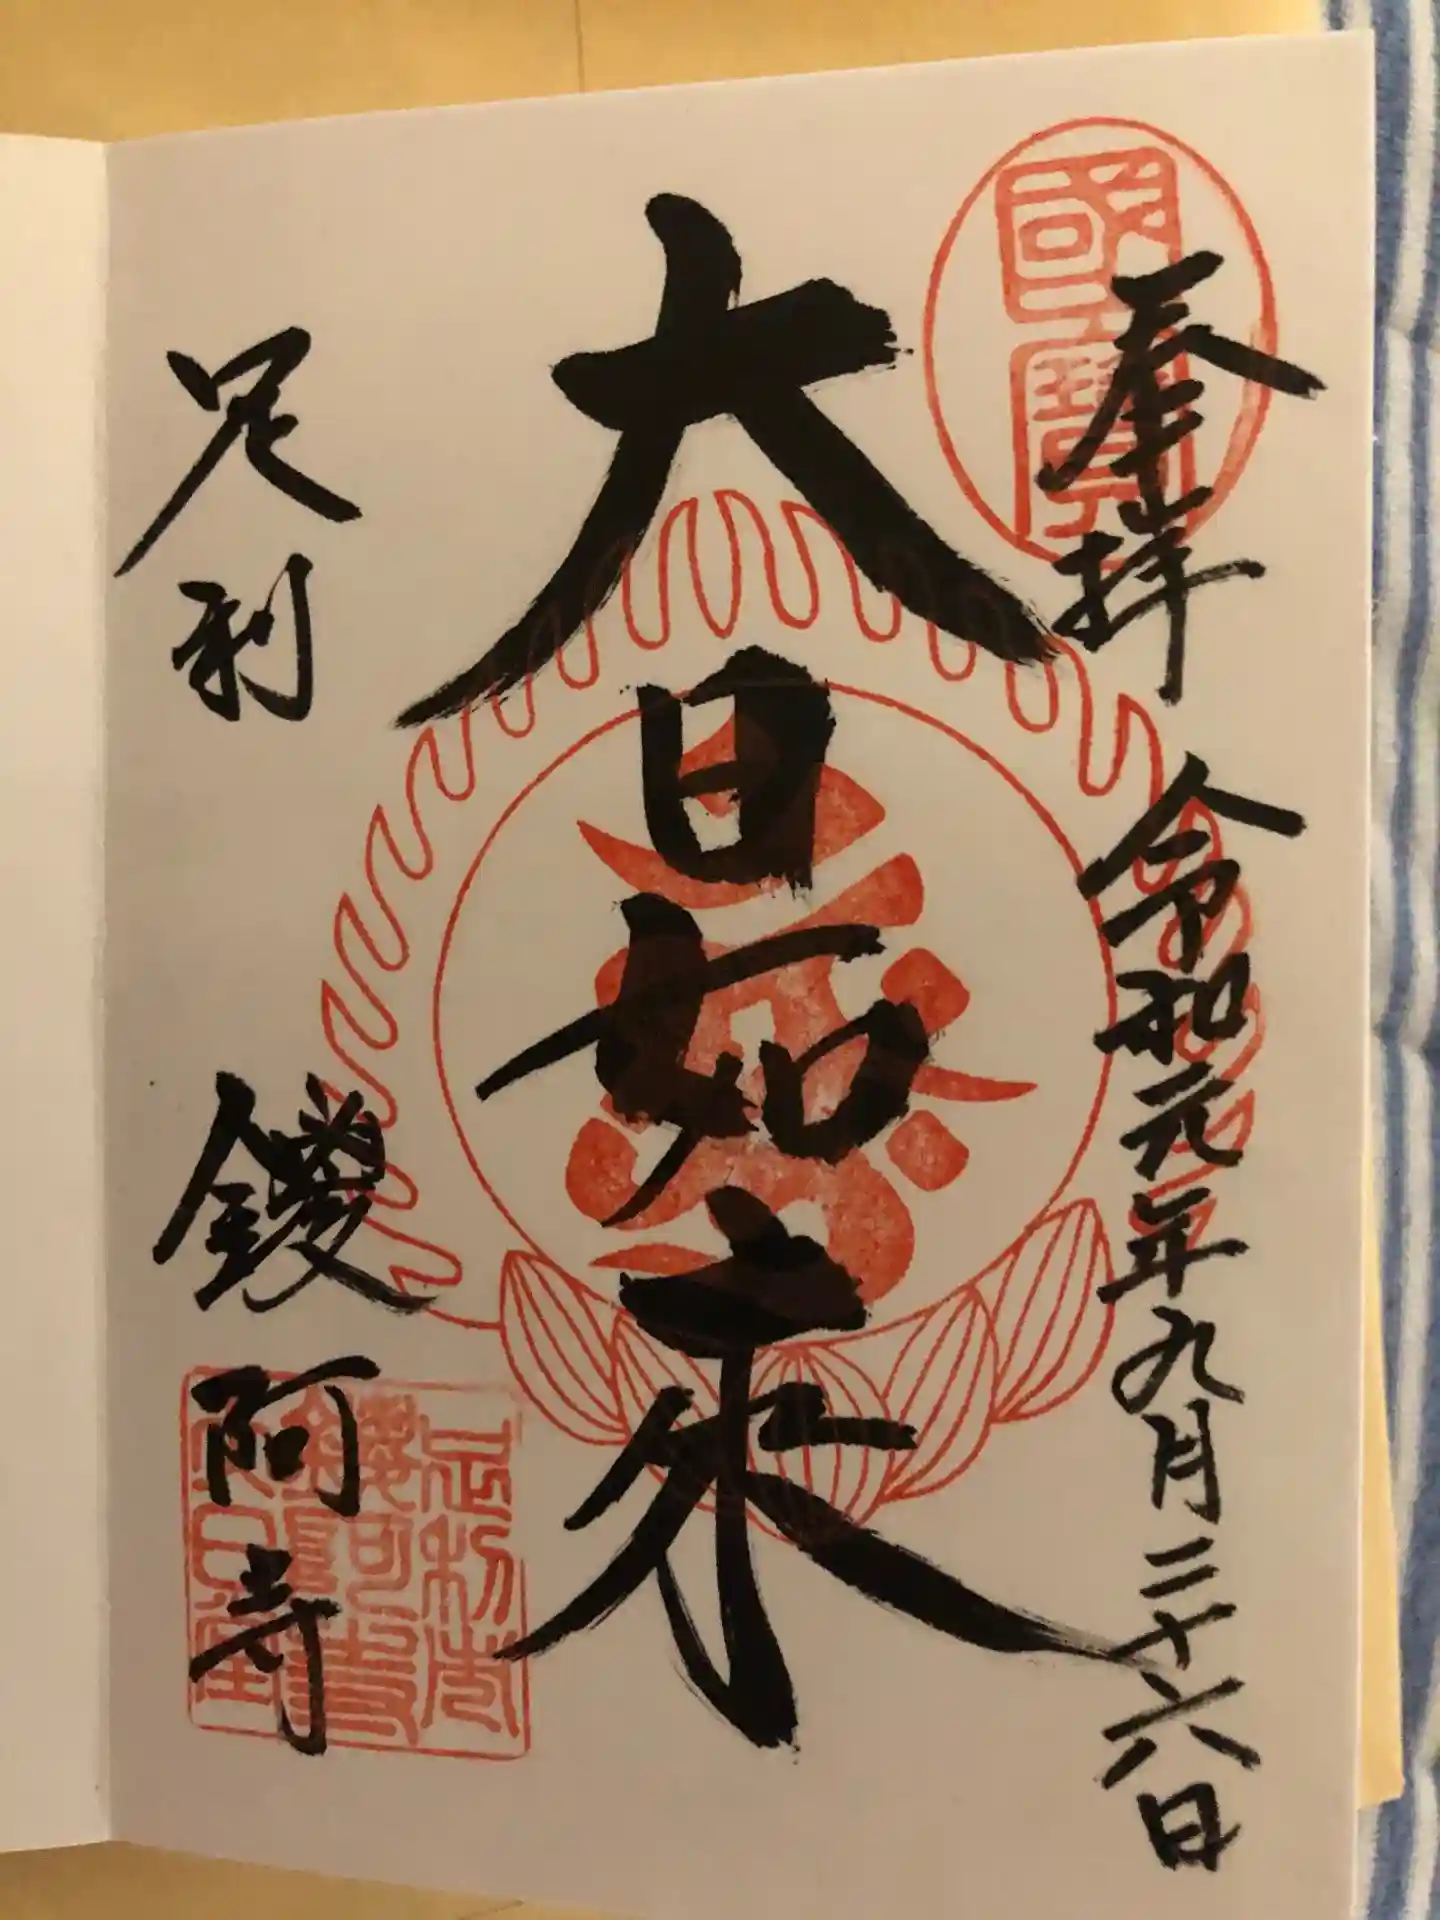 國寶
奉拝
令和元年九月二十六日
大日如来
足利
鑁阿寺
足利山
鑁阿寺
大日堂